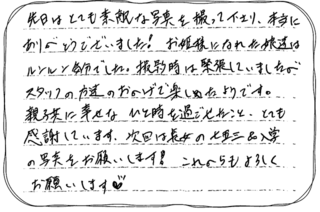 先日はとても素敵な写真を撮って下さり、本当に
ありがとうございました! お姫様になれた娘達は
ルンルン気分でした。撮影時は緊張していましたが
スタッフの方達のおかげで楽しめたようです。
親子共に幸せな ひと時を過ごせたこと、とても
感謝しています。次回は長女の七五三&入学
の写真をお願いします! これからもよろしく
お願いします♡